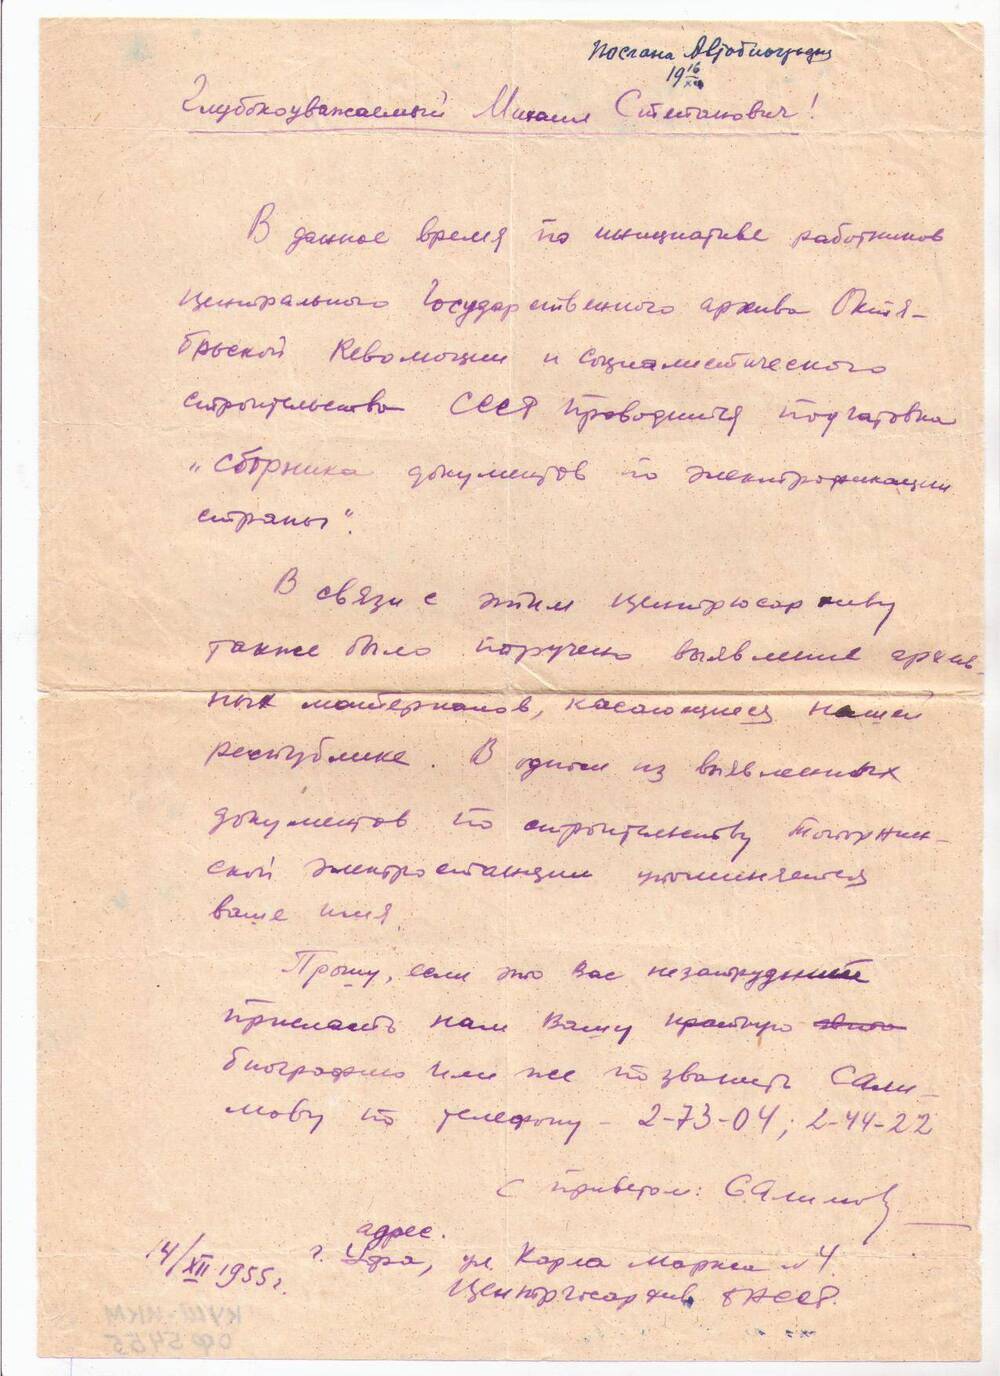 Послана Автобиография
19 16/XII
Глубокоуважаемый Михаил Степанович!
В данное время по инициативе работников
центрального Государственного архива Октя-
брьской Революции и социалистического
строительства СССР проводится подготовка
„сборника документов по электрофикации
страны".
В связи с этим центргосархиву
также было поручено выявление архив-
ных материалов, касающиеся нашей
республике. В одном из выявленных
документов по строительству
ской электростанции упоминяется
ваше имя.
Прошу, если это вас незатруднит
прислать нам вашу краткую
биографию или же позвонить Сали-
мову по телефону - 2-73-04; 2-44-22
С приветом: Салимов
адрес.
14/XII 1955г. г. Уфа, ул. Карла Маркса № 4.
Центргосархив БАССР.
КУШ-НКМ
ОФ 5455